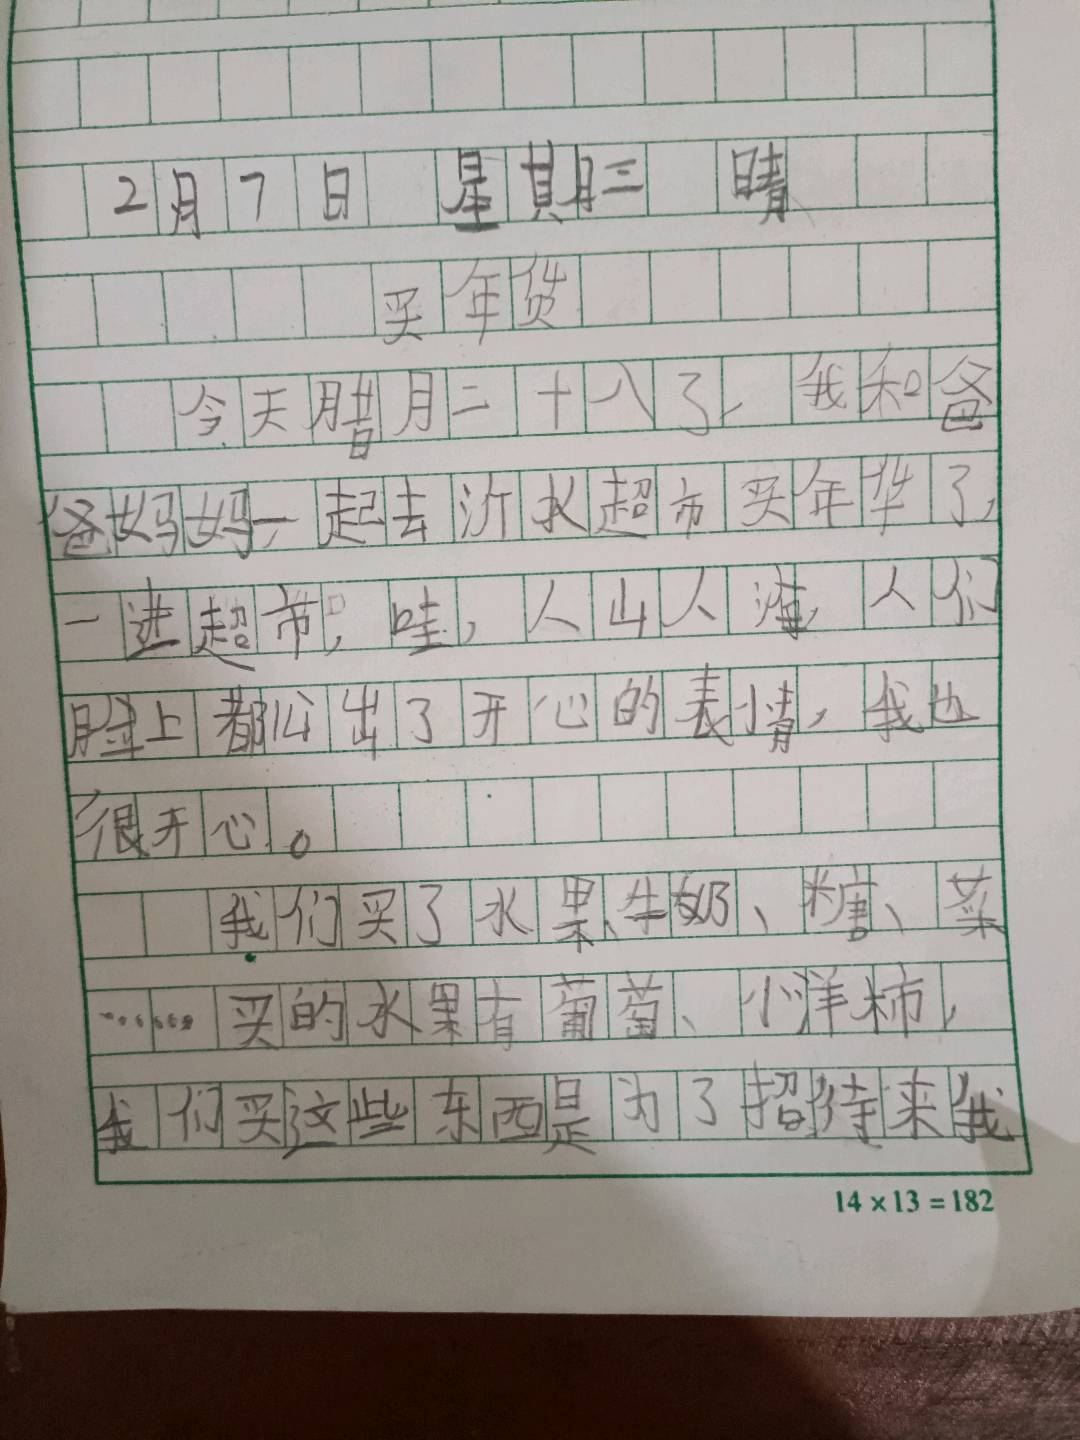 2月7日 星期三 晴
买年货
今天腊月二十八了，我和爸
爸妈妈一起去沂水超市买年华了，
一进超市，哇，人山人海，人们
脸上都公出了开心的表情，我也
很开心。
我们买了水果、牛奶、糖、菜
……买的水果有葡萄、小洋柿，
我们买这些东西是为了招待来我
14×13=182